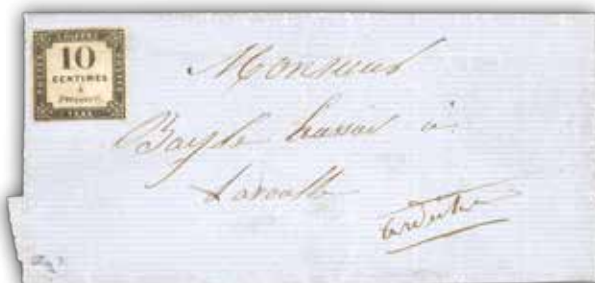 10
CENTIMES
à
percevoir
TAXE
Monsieur
Bayle huissier à
Lavoulte
ardèche